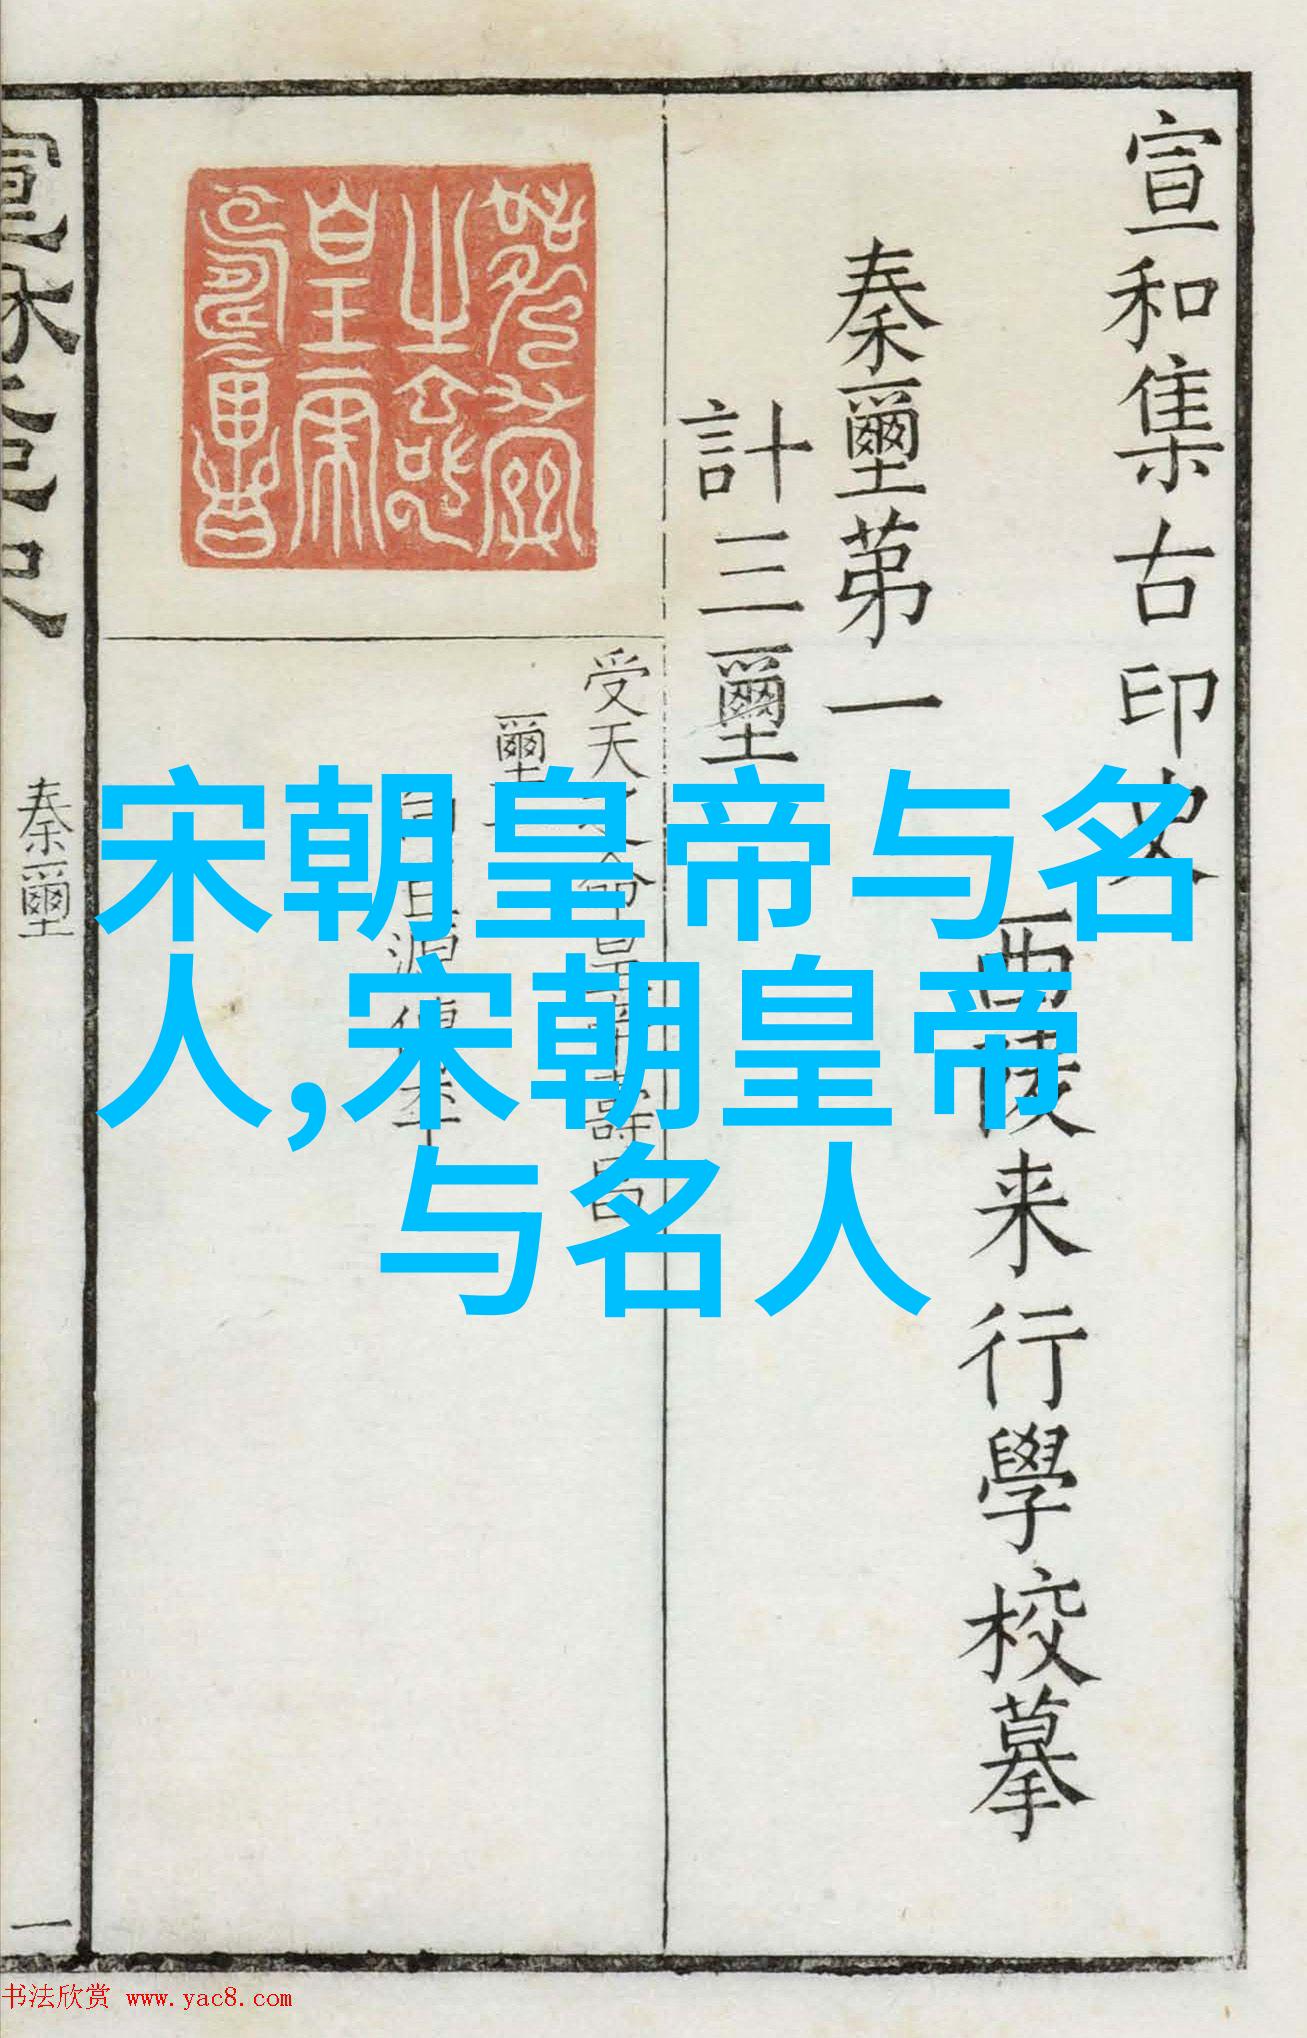 宣和集古印史
西陵来行學校摹
秦璽苐一
計三璽
受天之命皇帝壽昌
璽
秦璽
一
宋朝皇帝与名
人,宋朝皇帝
与名人
书法欣赏 www.yac8.com